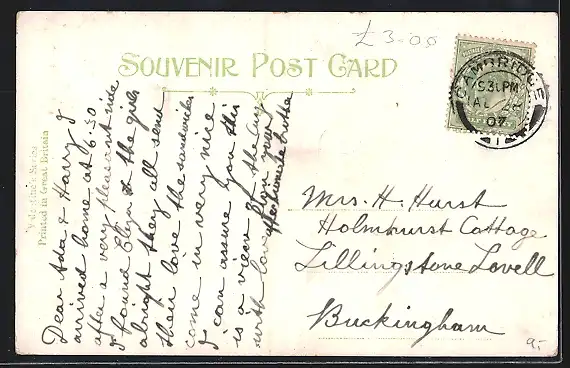 £3-00
SOUVENIR POST CARD
CAMBRIDGE
PM
07
1
Valentine's Series
Printed in Great Britain
Dear Ada & Harry I
arrived home at 6.30
after a very pleasant ride
I found Eliza & the girls
alright they all send
their love the sandwiches
come in very nice
I can assure you this
is a view of the
with love from your
affectionate
Mrs. H. Hurst
Holmhurst Cottage
Lillingstone Lovell
Buckingham
9.-